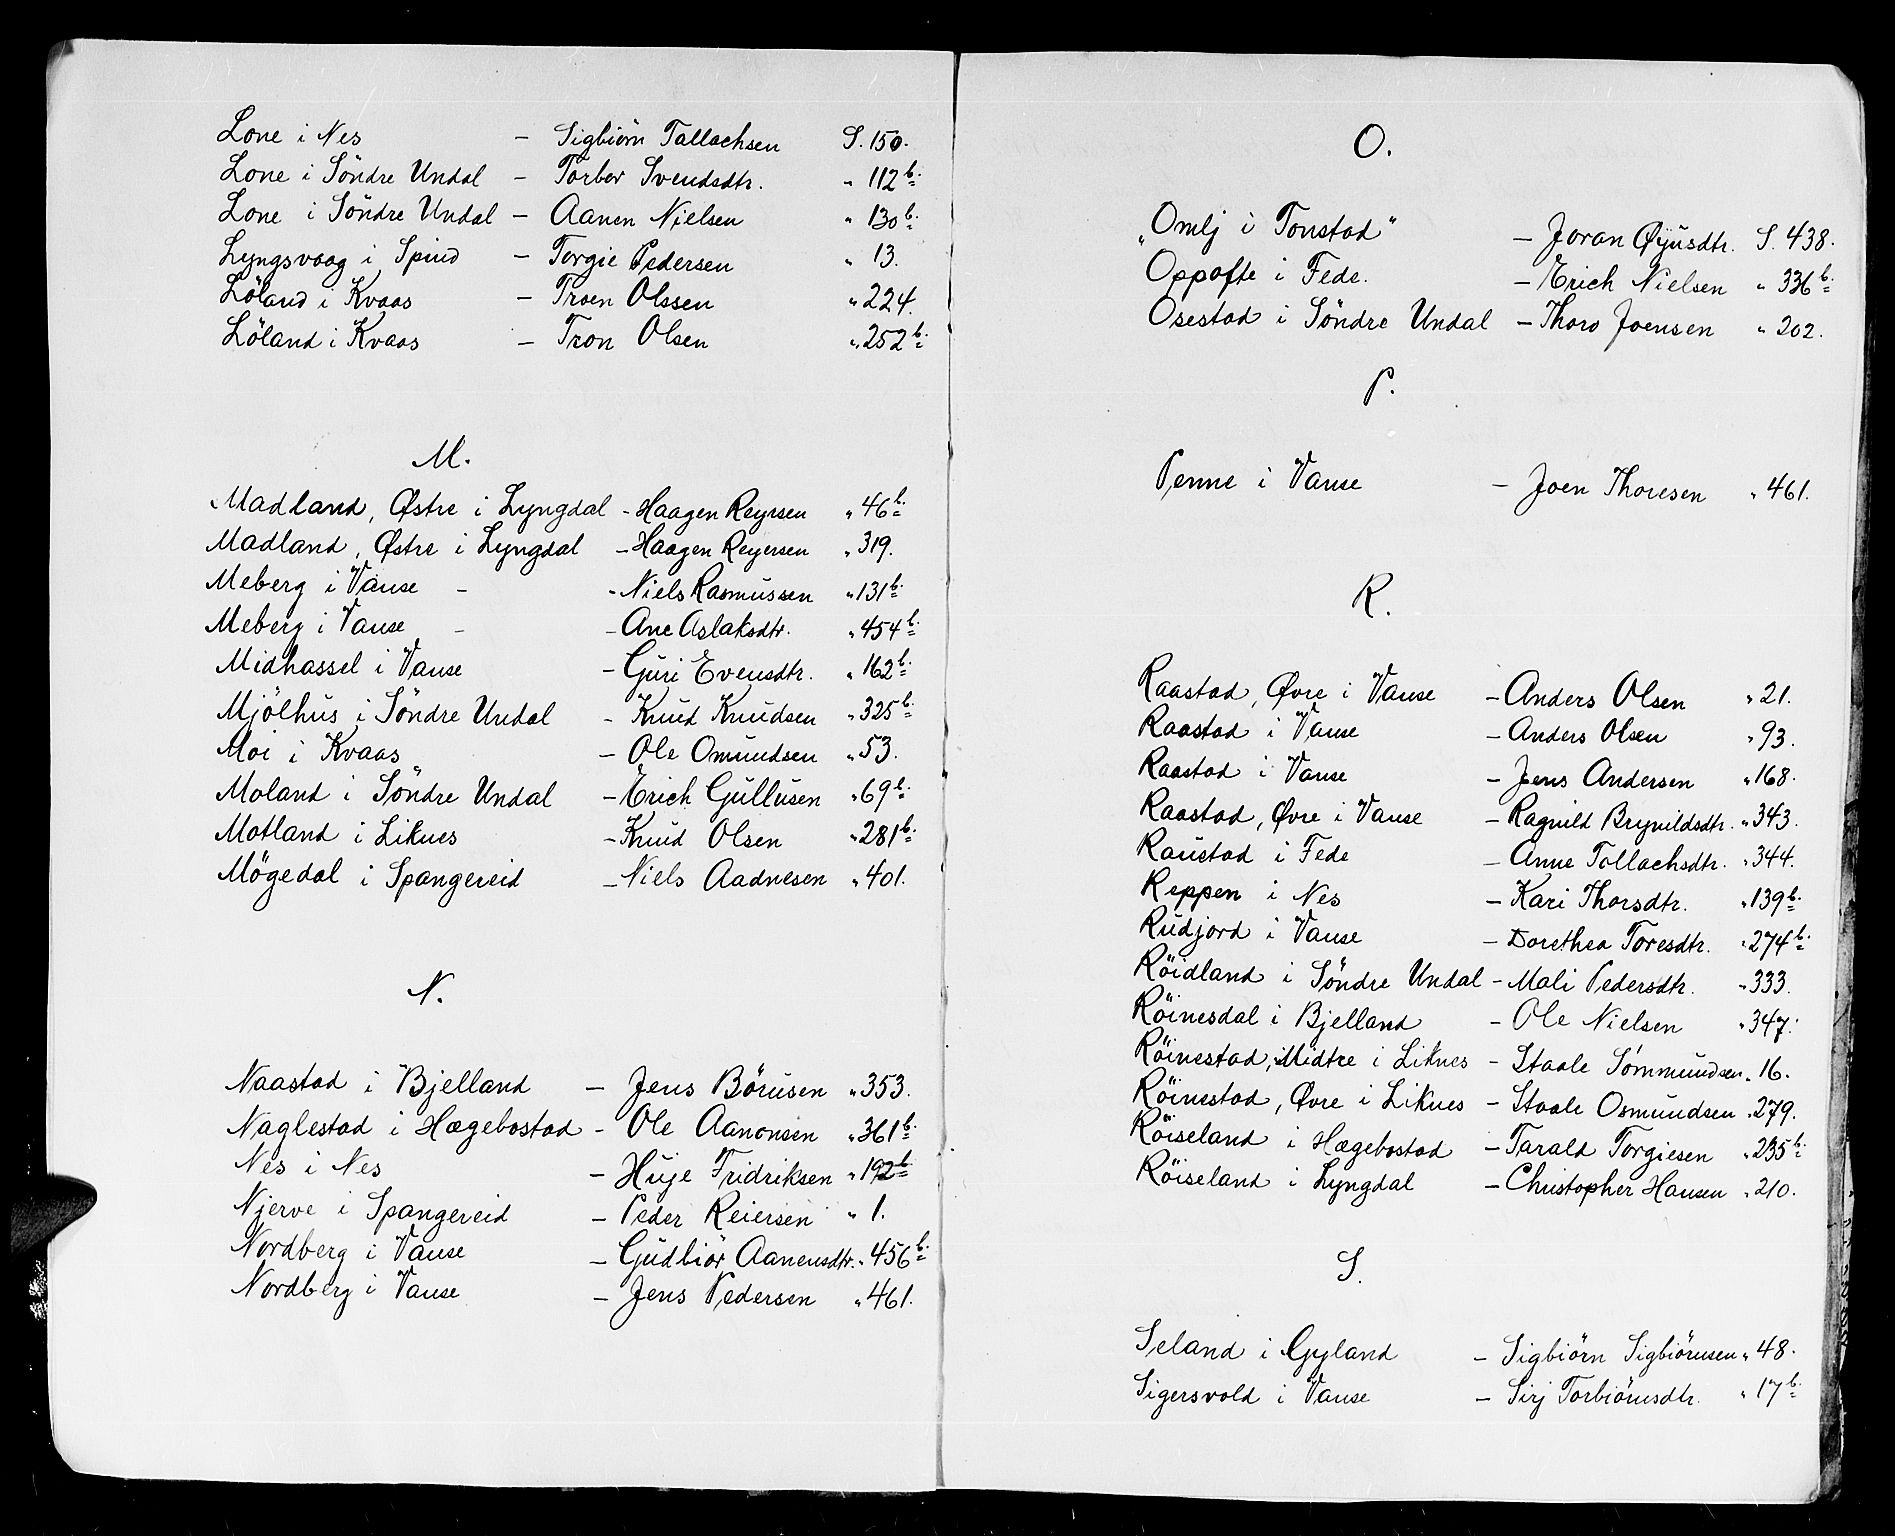 Lone i Nes – Sigbiörn Tallachsen S. 150.
Lone i Söndre Undal – Torber Svendsdtr. „ 112 b.
Lone i Söndre Undal – Aanen Nielsen „ 130 b.
Lyngsvaag i Spind – Torgie Pedersen „ 13.
Löland i Kvaas – Troen Olssen „ 224.
Löland i Kvaas – Tron Olsen „ 252 b.
M.
Madland, Østre i Lyngdal – Haagen Reyrsen „ 46 b.
Madland, Østre i Lyngdal – Haagen Reyersen „ 319.
Meberg i Vanse – – Niels Rasmussen „ 131 b.
Meberg i Vanse – – Ane Aslaksdtr. „ 454 b.
Midhassel i Vanse – Guri Evensdtr. „ 162 b.
Mjölhus i Söndre Undal – Knud Knudsen „ 325 b.
Moi i Kvaas – Ole Omundsen „ 53.
Moland i Söndre Undal – Erich Gullusen „ 69 b.
Motland i Liknes – Knud Olsen „ 281 b.
Mögedal i Spangereid – Niels Aadnesen „ 401.
N.
Naastad i Bjelland – Jens Börusen „ 353.
Naglestad i Hægebostad – Ole Aanonsen „ 361 b.
Nes i Nes – Huje Fridriksen „ 192 b.
Njerve i Spangereid – Peder Reiersen „ 1.
Nordberg i Vanse – Gudbiör Aanensdtr. „ 456 b.
Nordberg i Vanse – Jens Pedersen „ 461.
O.
„Omlj i Tonstad" – Joran Øyusdtr. S. 438.
Oppofte i Fede. – Erich Nielsen „ 336 b.
Osestad i Söndre Undal – Thoro Joensen „ 202.
P.
Penne i Vanse – Joen Thoresen „ 461.
R.
Raastad, Øvre i Vanse – Anders Olsen „ 21.
Raastad i Vanse – Anders Olsen „ 93.
Raastad i Vanse – Jens Andersen „ 168.
Raastad, Øvre i Vanse – Ragnild Brynildsdtr. „ 343.
Raustad i Fede – Anne Tollachsdtr. „ 344.
Reppen i Nes – Kari Thorsdtr. „ 139 b.
Rudjord i Vanse – Dorethea Toresdtr. „ 274 b.
Röidland i Söndre Undal – Mali Pedersdtr. „ 333.
Röinesdal i Bjelland – Ole Nielsen „ 347.
Röinestad, Midtre i Liknes – Staale Sommundsen „ 16.
Röinestad, Øvre i Liknes – Staale Osmundsen „ 279.
Röiseland i Hægebostad – Tarald Torgiesen „ 235 b.
Röiseland i Lyngdal – Christopher Hansen „ 210.
S.
Seland i Gyland – Sigbiörn Sigbiörnsen „ 48.
Sigersvold i Vanse – Sirj Torbiörnsdtr. „ 17 b.